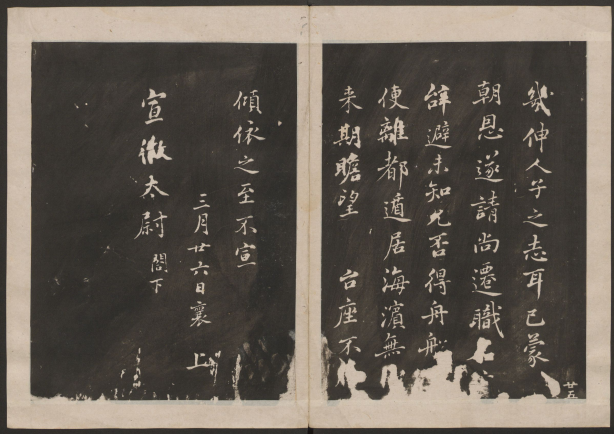 幾伸人子之志耳已蒙
朝恩遂請尚遷職
辞避未知允否得舟舩
便離都遁居海濱無
来期瞻望 台座不
傾依之至不宣
三月廿六日襄 上
宣徽太尉 閤下
廿五